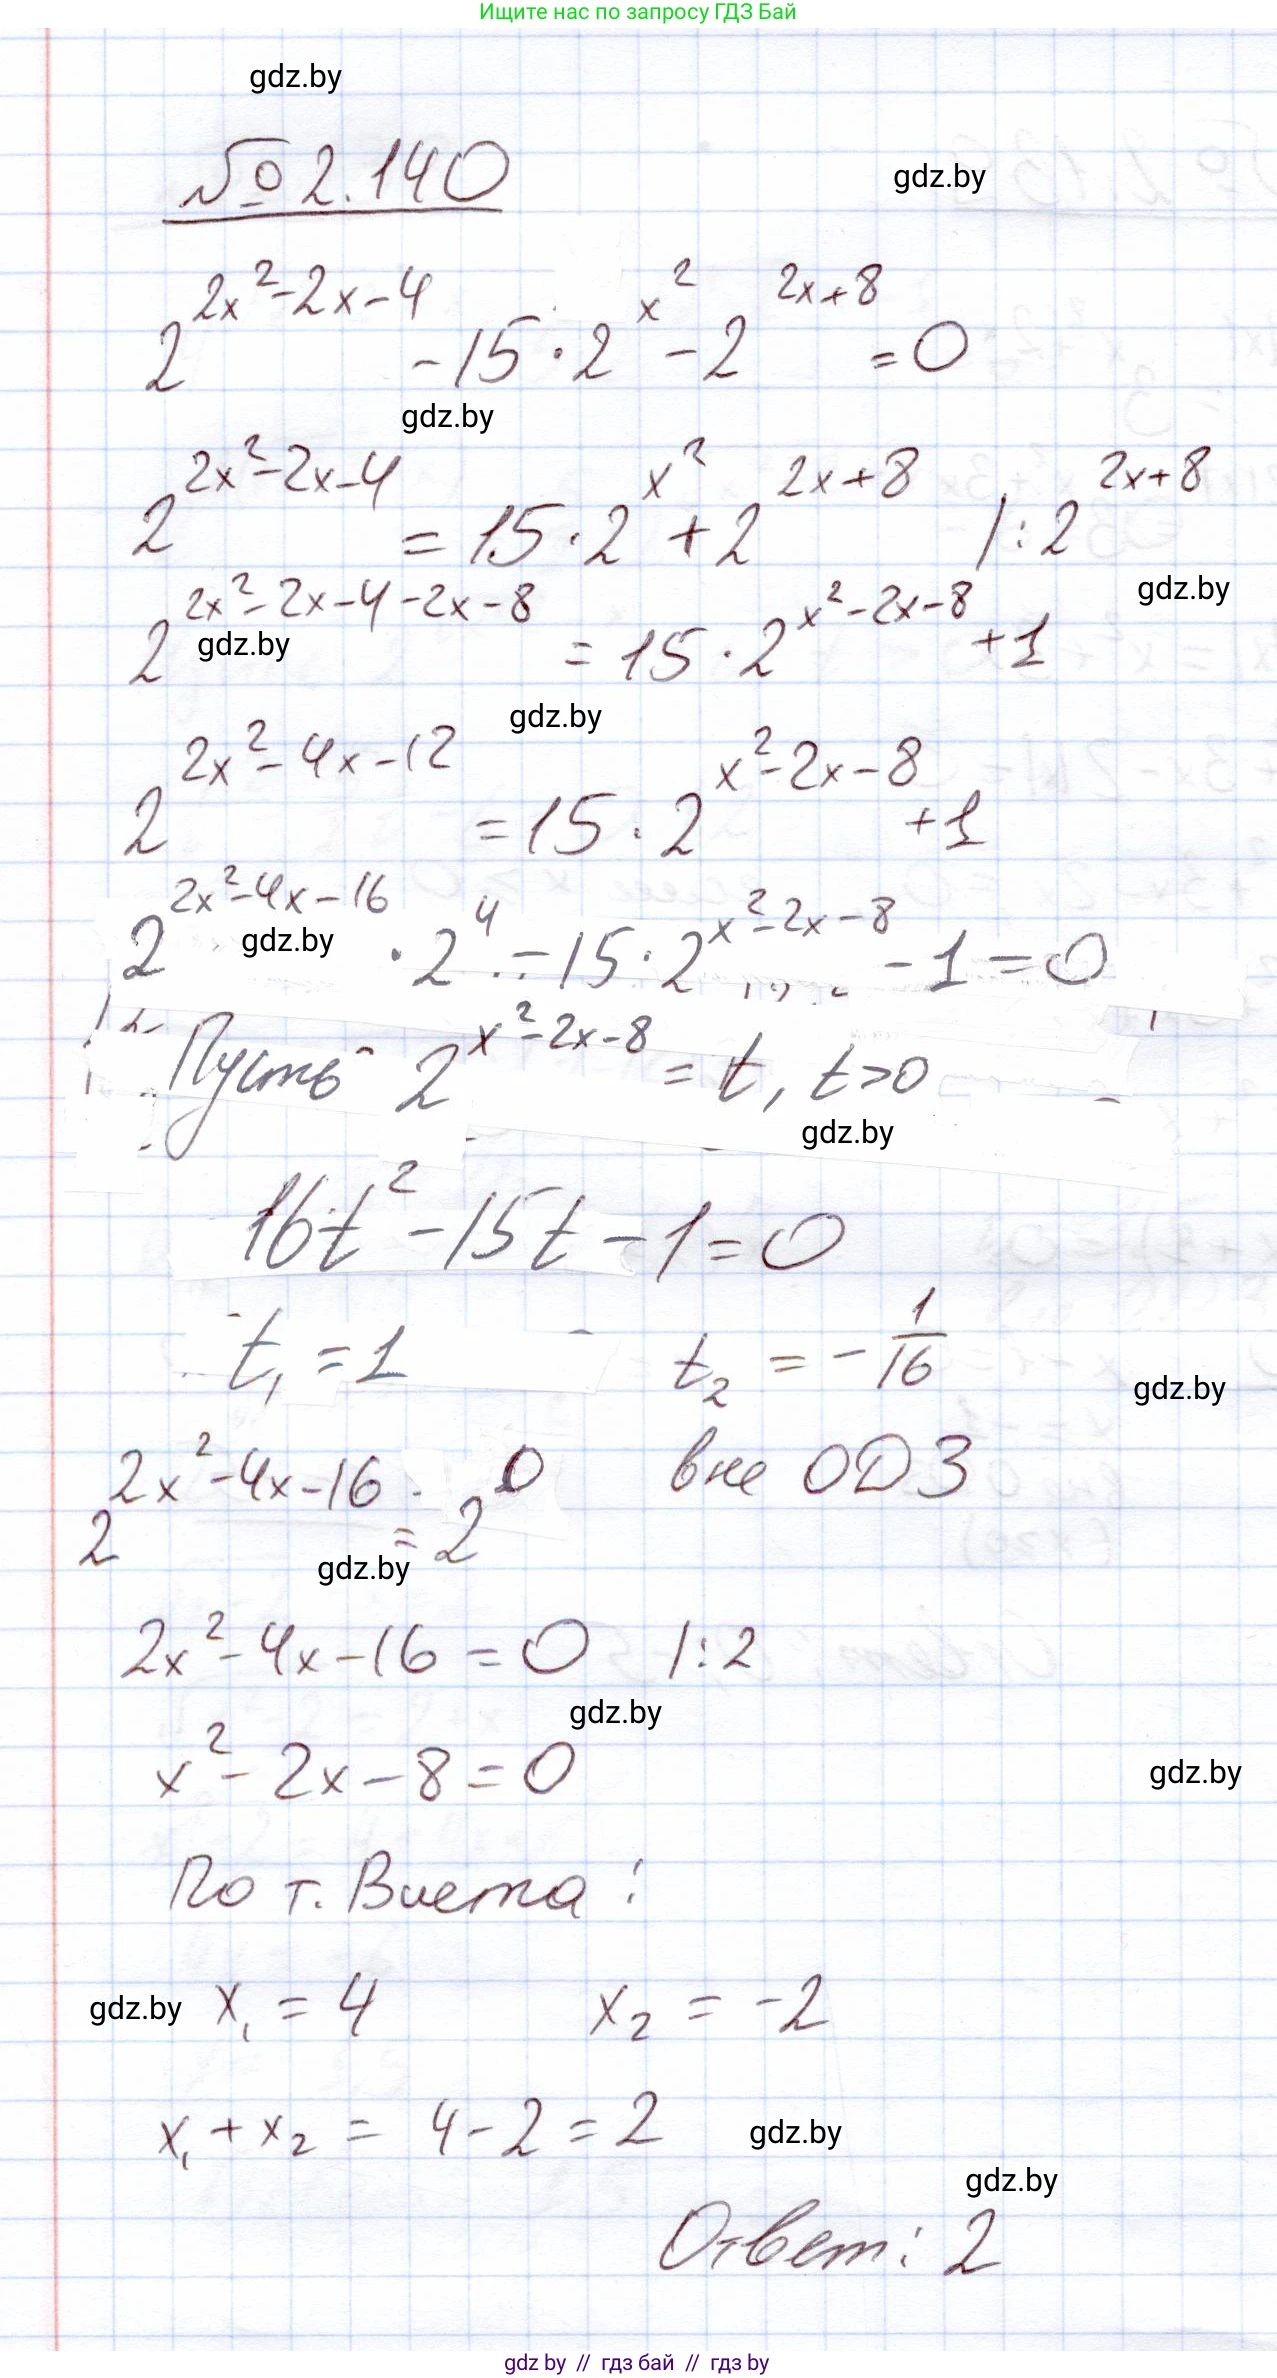 Ищите нас по запросу ГДЗ Бай
gdz.by
№ 2.140
gdz.by
2^{2x²-2x-4} - 15 · 2^{x²} - 2^{2x+8} = 0
gdz.by
2^{2x²-2x-4} = 15 · 2^{x²} + 2^{2x+8} | : 2^{2x+8}
gdz.by
2^{2x²-2x-4-2x-8} = 15 · 2^{x²-2x-8} + 1
gdz.by
gdz.by
2^{2x²-4x-12} = 15 · 2^{x²-2x-8} + 1
2^{2x²-4x-16} · 2^4 - 15 · 2^{x²-2x-8} - 1 = 0
gdz.by
Пусть 2^{x²-2x-8} = t, t>0
gdz.by
16t² - 15t - 1 = 0
t₁ = 1 t₂ = -1/16
gdz.by
2^{2x²-4x-16} = 2^0 вне ОДЗ
gdz.by
2x² - 4x - 16 = 0 | : 2
gdz.by
x² - 2x - 8 = 0
gdz.by
По т. Виета:
gdz.by
x₁ = 4 x₂ = -2
x₁ + x₂ = 4 - 2 = 2
gdz.by
gdz.by
Ответ: 2
gdz by // гдз бай // гдз by